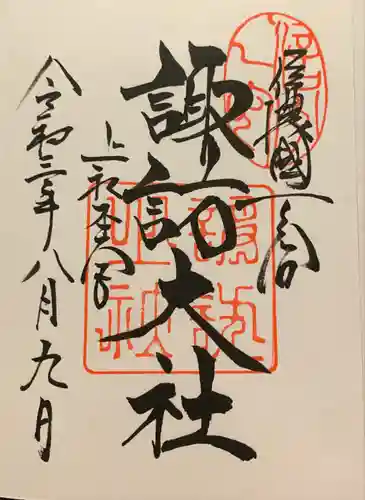 信濃國一之宮
諏訪大社
上社本宮
令和三年八月九日
諏訪
大社